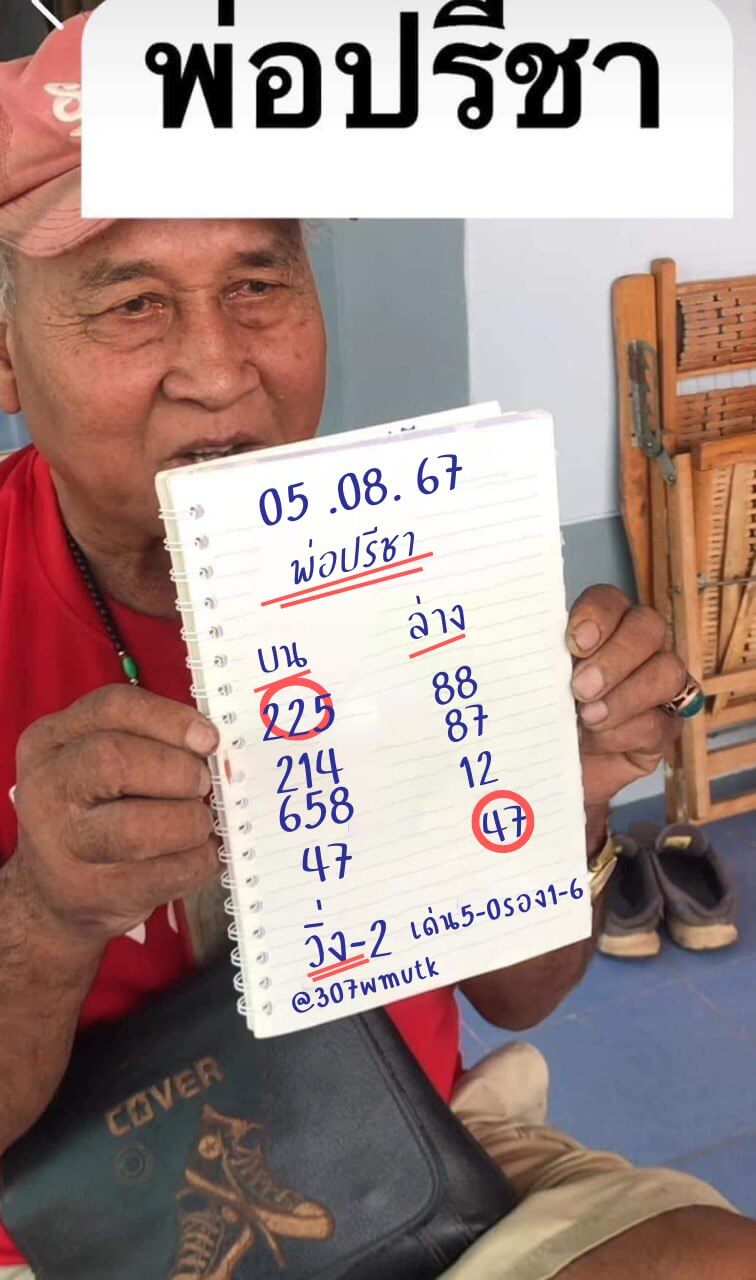 พ่อปรีชา
05 .08. 67
พ่อปรีชา
บน ล่าง
225 88
214 87
658 12
47 47
วิ่ง-2 เด่น5-0รอง1-6
@307wmutk
COVER